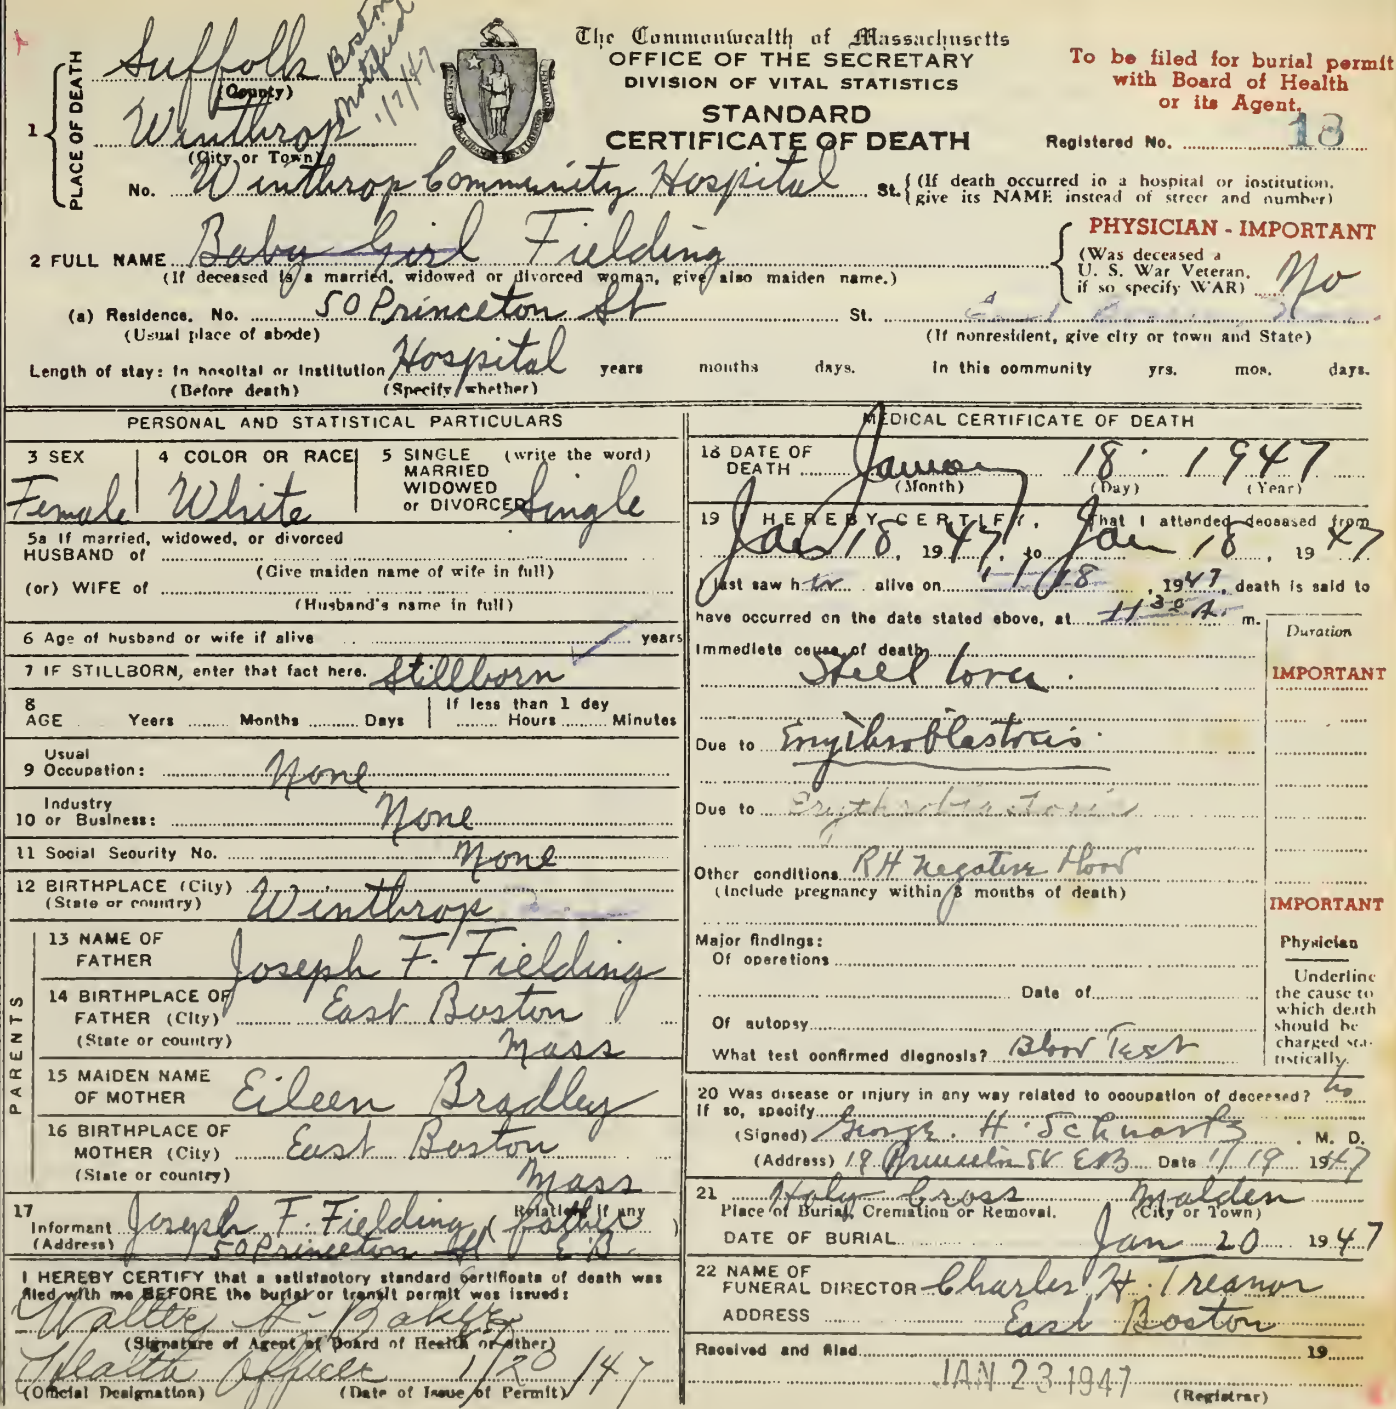 The Commonwealth of Massachusetts
OFFICE OF THE SECRETARY
DIVISION OF VITAL STATISTICS
STANDARD
CERTIFICATE OF DEATH
To be filed for burial permit
with Board of Health
or its Agent.
Registered No. 18
Boston
Notified
1/7/47
1 PLACE OF DEATH
Suffolk
(County)
Winthrop
(City or Town)
No. Winthrop Community Hospital St. (If death occurred in a hospital or institution, give its NAME instead of street and number)
2 FULL NAME Baby Girl Fielding
(If deceased is a married, widowed or divorced woman, give also maiden name.)
PHYSICIAN - IMPORTANT
(Was deceased a
U. S. War Veteran,
if so specify WAR) No
(a) Residence. No. 50 Princeton St St. East Boston, Mass.
(Usual place of abode) (If nonresident, give city or town and State)
Length of stay: In hospital or Institution Hospital years months days. In this community yrs. mos. days.
(Before death) (Specify whether)
PERSONAL AND STATISTICAL PARTICULARS
3 SEX Female
4 COLOR OR RACE White
5 SINGLE (write the word)
MARRIED
WIDOWED
or DIVORCED Single
5a If married, widowed, or divorced
HUSBAND of
(Give maiden name of wife in full)
(or) WIFE of
(Husband's name in full)
6 Age of husband or wife if alive years
7 IF STILLBORN, enter that fact here. Stillborn
8 AGE Years Months Days If less than 1 day Hours Minutes
9 Usual Occupation: None
10 Industry or Business: None
11 Social Security No. None
12 BIRTHPLACE (City) Winthrop
(State or country)
PARENTS
13 NAME OF FATHER Joseph F. Fielding
14 BIRTHPLACE OF FATHER (City) East Boston
(State or country) Mass
15 MAIDEN NAME OF MOTHER Eileen Bradley
16 BIRTHPLACE OF MOTHER (City) East Boston
(State or country) Mass
17 Informant Joseph F. Fielding (Relation, if any father)
(Address) 50 Princeton St E B.
I HEREBY CERTIFY that a satisfactory standard certificate of death was
filed with me BEFORE the burial or transit permit was issued:
Walter G. Baker
(Signature of Agent of Board of Health or other)
Health Officer 1/20/47
(Official Designation) (Date of Issue of Permit)
MEDICAL CERTIFICATE OF DEATH
18 DATE OF DEATH January 18 1947
(Month) (Day) (Year)
19 I HEREBY CERTIFY, That I attended deceased from
Jan 18, 1947, to Jan 18, 1947
I last saw h alive on 1/18, 1947, death is said to
have occurred on the date stated above, at 11 30 A. m.
Duration
Immediate cause of death
Still born.
IMPORTANT
Due to Erythroblastosis.
Due to Erythroblastosis
Other conditions RH negative blood
(Include pregnancy within 3 months of death)
IMPORTANT
Major findings:
Of operations
Date of
Of autopsy
What test confirmed diagnosis? Blood Test
Physician
Underline
the cause to
which death
should be
charged sta-
tistically.
20 Was disease or injury in any way related to occupation of deceased? no
If so, specify
(Signed) George H. Schwartz, M. D.
(Address) 19 Princeton St E B Date 1/19 1947
21 Holy Cross Malden
Place of Burial, Cremation or Removal. (City or Town)
DATE OF BURIAL Jan 20 1947
22 NAME OF FUNERAL DIRECTOR Charles H. Treanor
ADDRESS East Boston
Received and filed 19
JAN 23 1947
(Registrar)